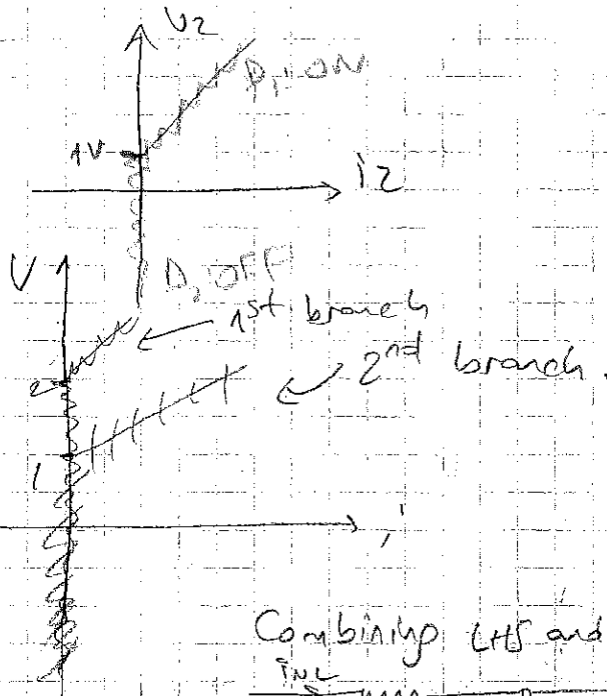 V2
D, : ON
1V
i2
V
D, OFF
1st branch
2nd branch.
2
1
i
Combining LHS and
iNL